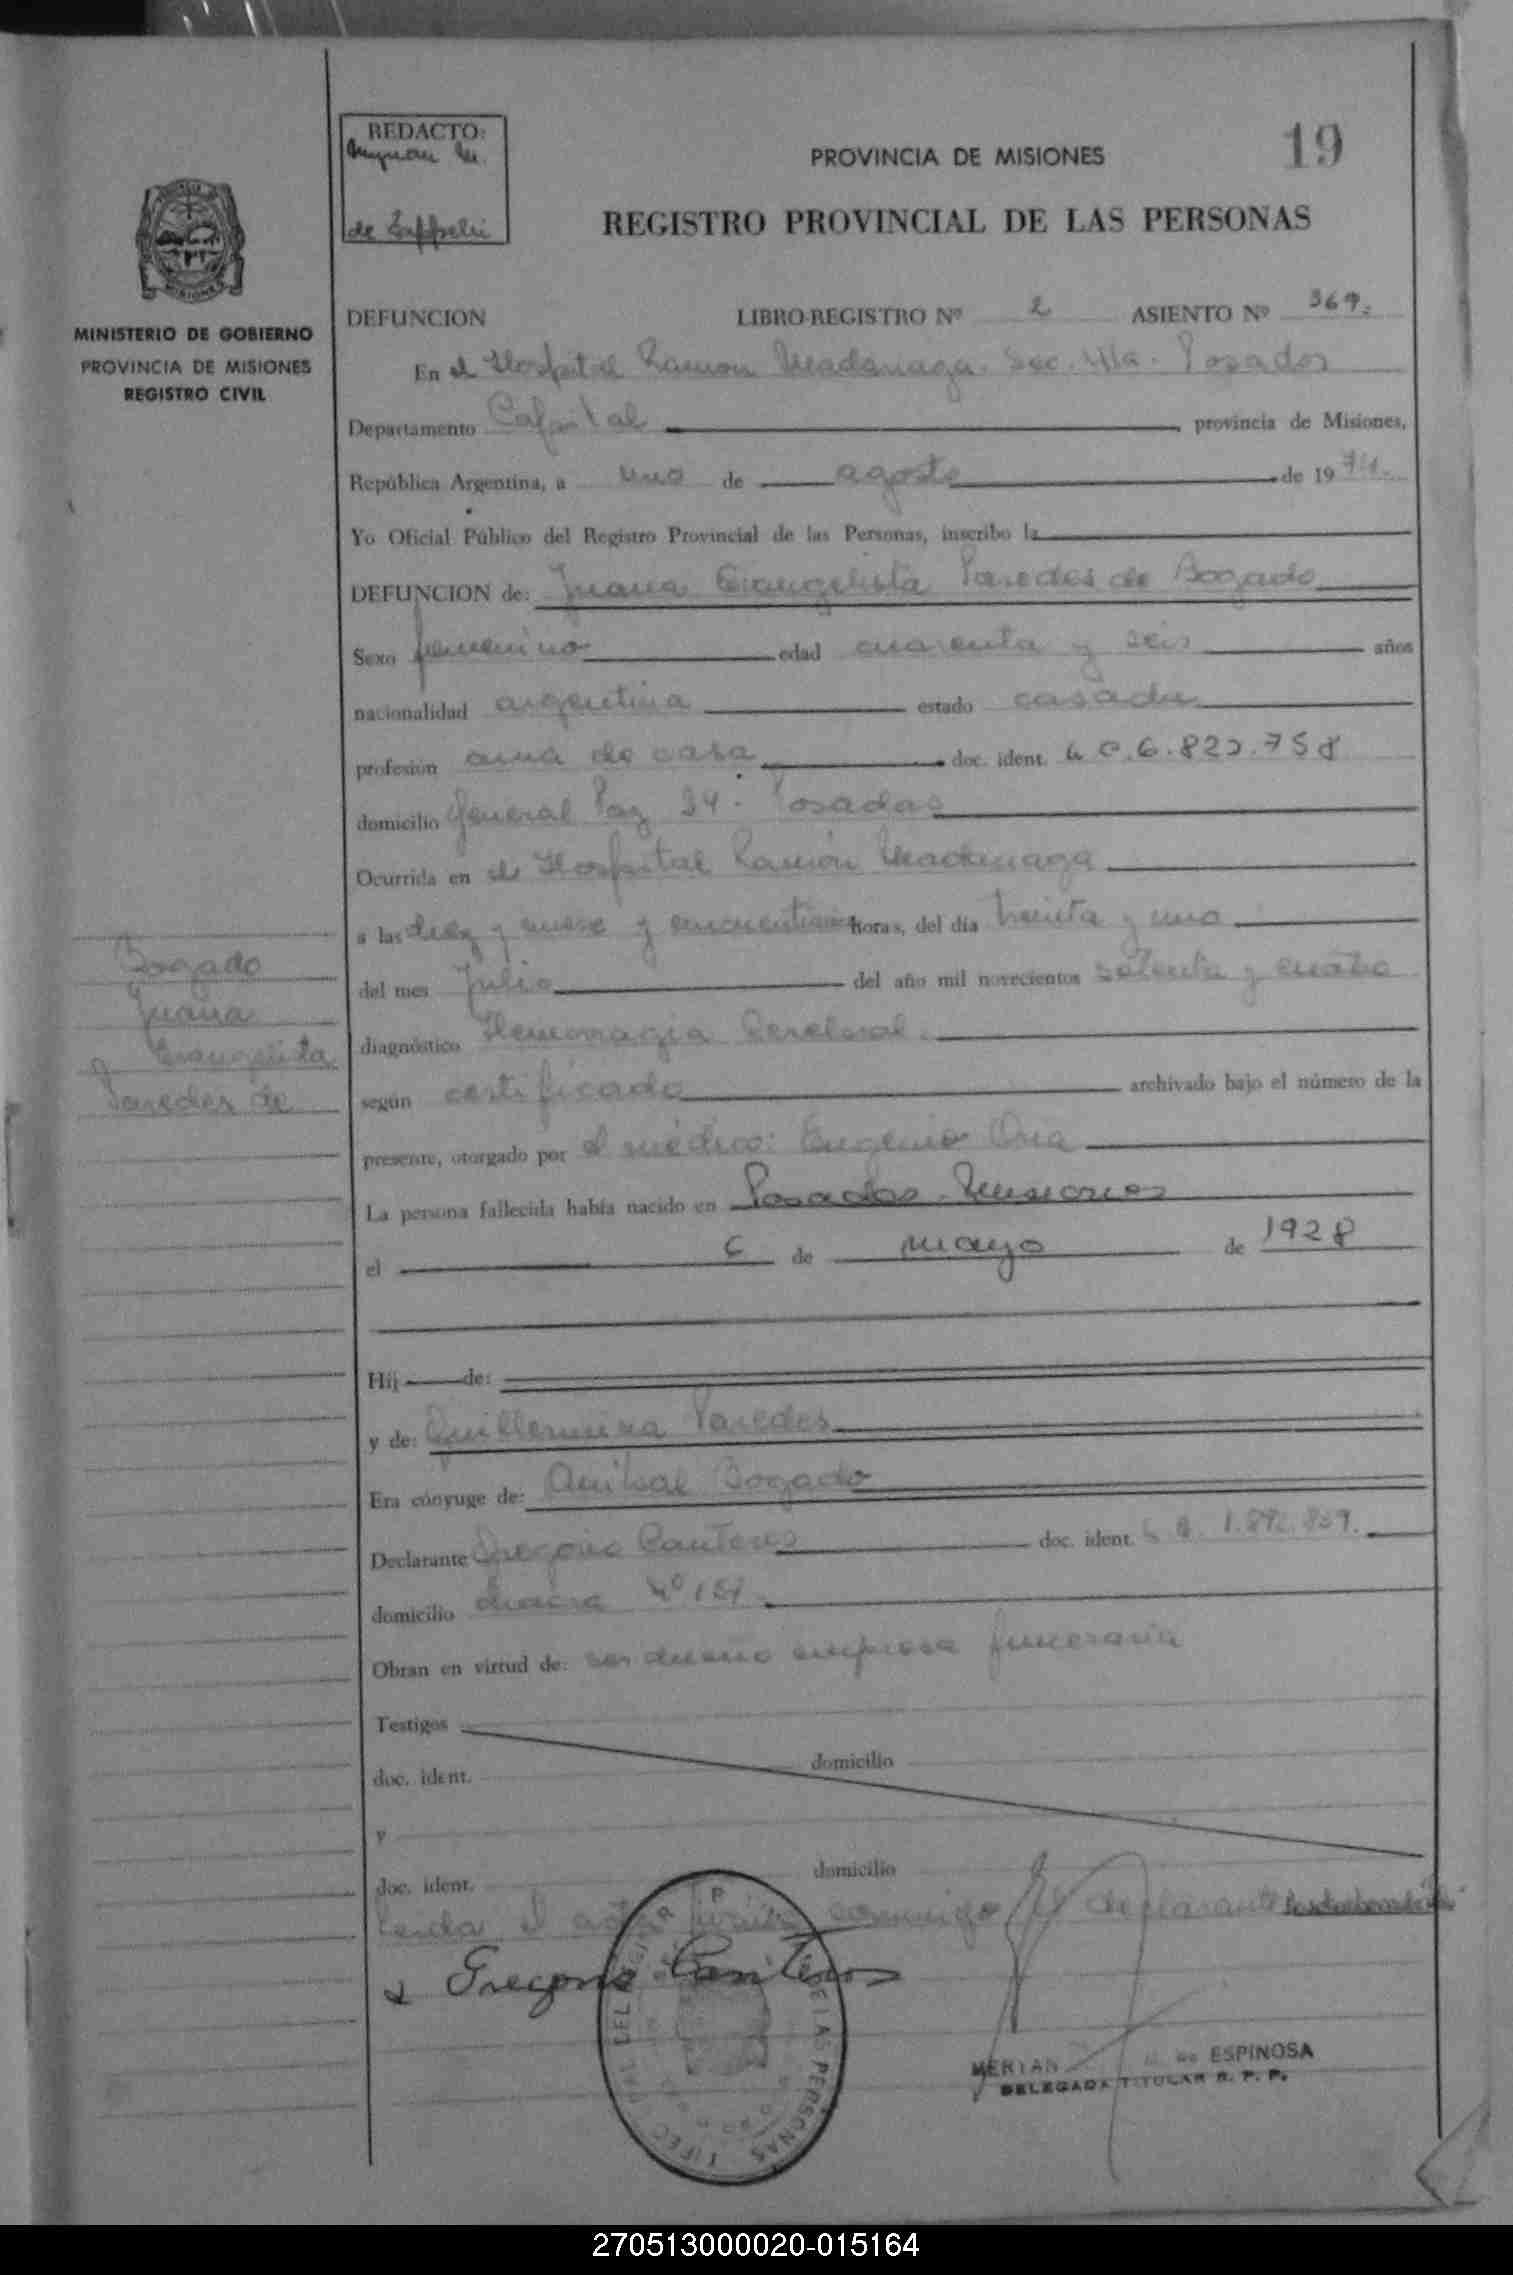 REDACTO:
PROVINCIA DE MISIONES
19
REGISTRO PROVINCIAL DE LAS PERSONAS
MINISTERIO DE GOBIERNO
PROVINCIA DE MISIONES
REGISTRO CIVIL
DEFUNCION LIBRO-REGISTRO Nº 2 ASIENTO Nº 369.
En el Hospital Ramon Madariaga. Sec. 4ta. Posadas
Departamento Capital provincia de Misiones,
República Argentina, a uno de agosto de 1974.
Yo Oficial Público del Registro Provincial de las Personas, inscribo la
DEFUNCION de: Juana Evangelista Paredes de Bogado
Sexo femenino edad cuarenta y seis años
nacionalidad argentina estado casada
profesión ama de casa doc. ident. L C. 6.822.758
domicilio General Paz 34. Posadas
Ocurrida en el Hospital Ramón Madariaga
a las diez y nueve y horas, del día treinta y uno
del mes Julio del año mil novecientos setenta y cuatro
diagnóstico Hemorragia Cerebral.
según certificado archivado bajo el número de la
presente, otorgado por el médico: Eugenio Oria
La persona fallecida había nacido en Posadas - Misiones
el 6 de mayo de 1928
Bogado
Juana
Evangelista
Paredes de
Hij de:
y de: Guillermina Paredes
Era cónyuge de: Anibal Bogado
Declarante Gregorio Canteros doc. ident.
domicilio chacra Nº 151
Obran en virtud de: ser dueño empresa funeraria
Testigos
doc. ident. domicilio
y
doc. ident. domicilio
Leida el acta firma conmigo el declarante
Gregorio Canteros
DE LAS PERSONAS
ESPINOSA
DELEGADA TITULAR R. P. P.
270513000020-015164